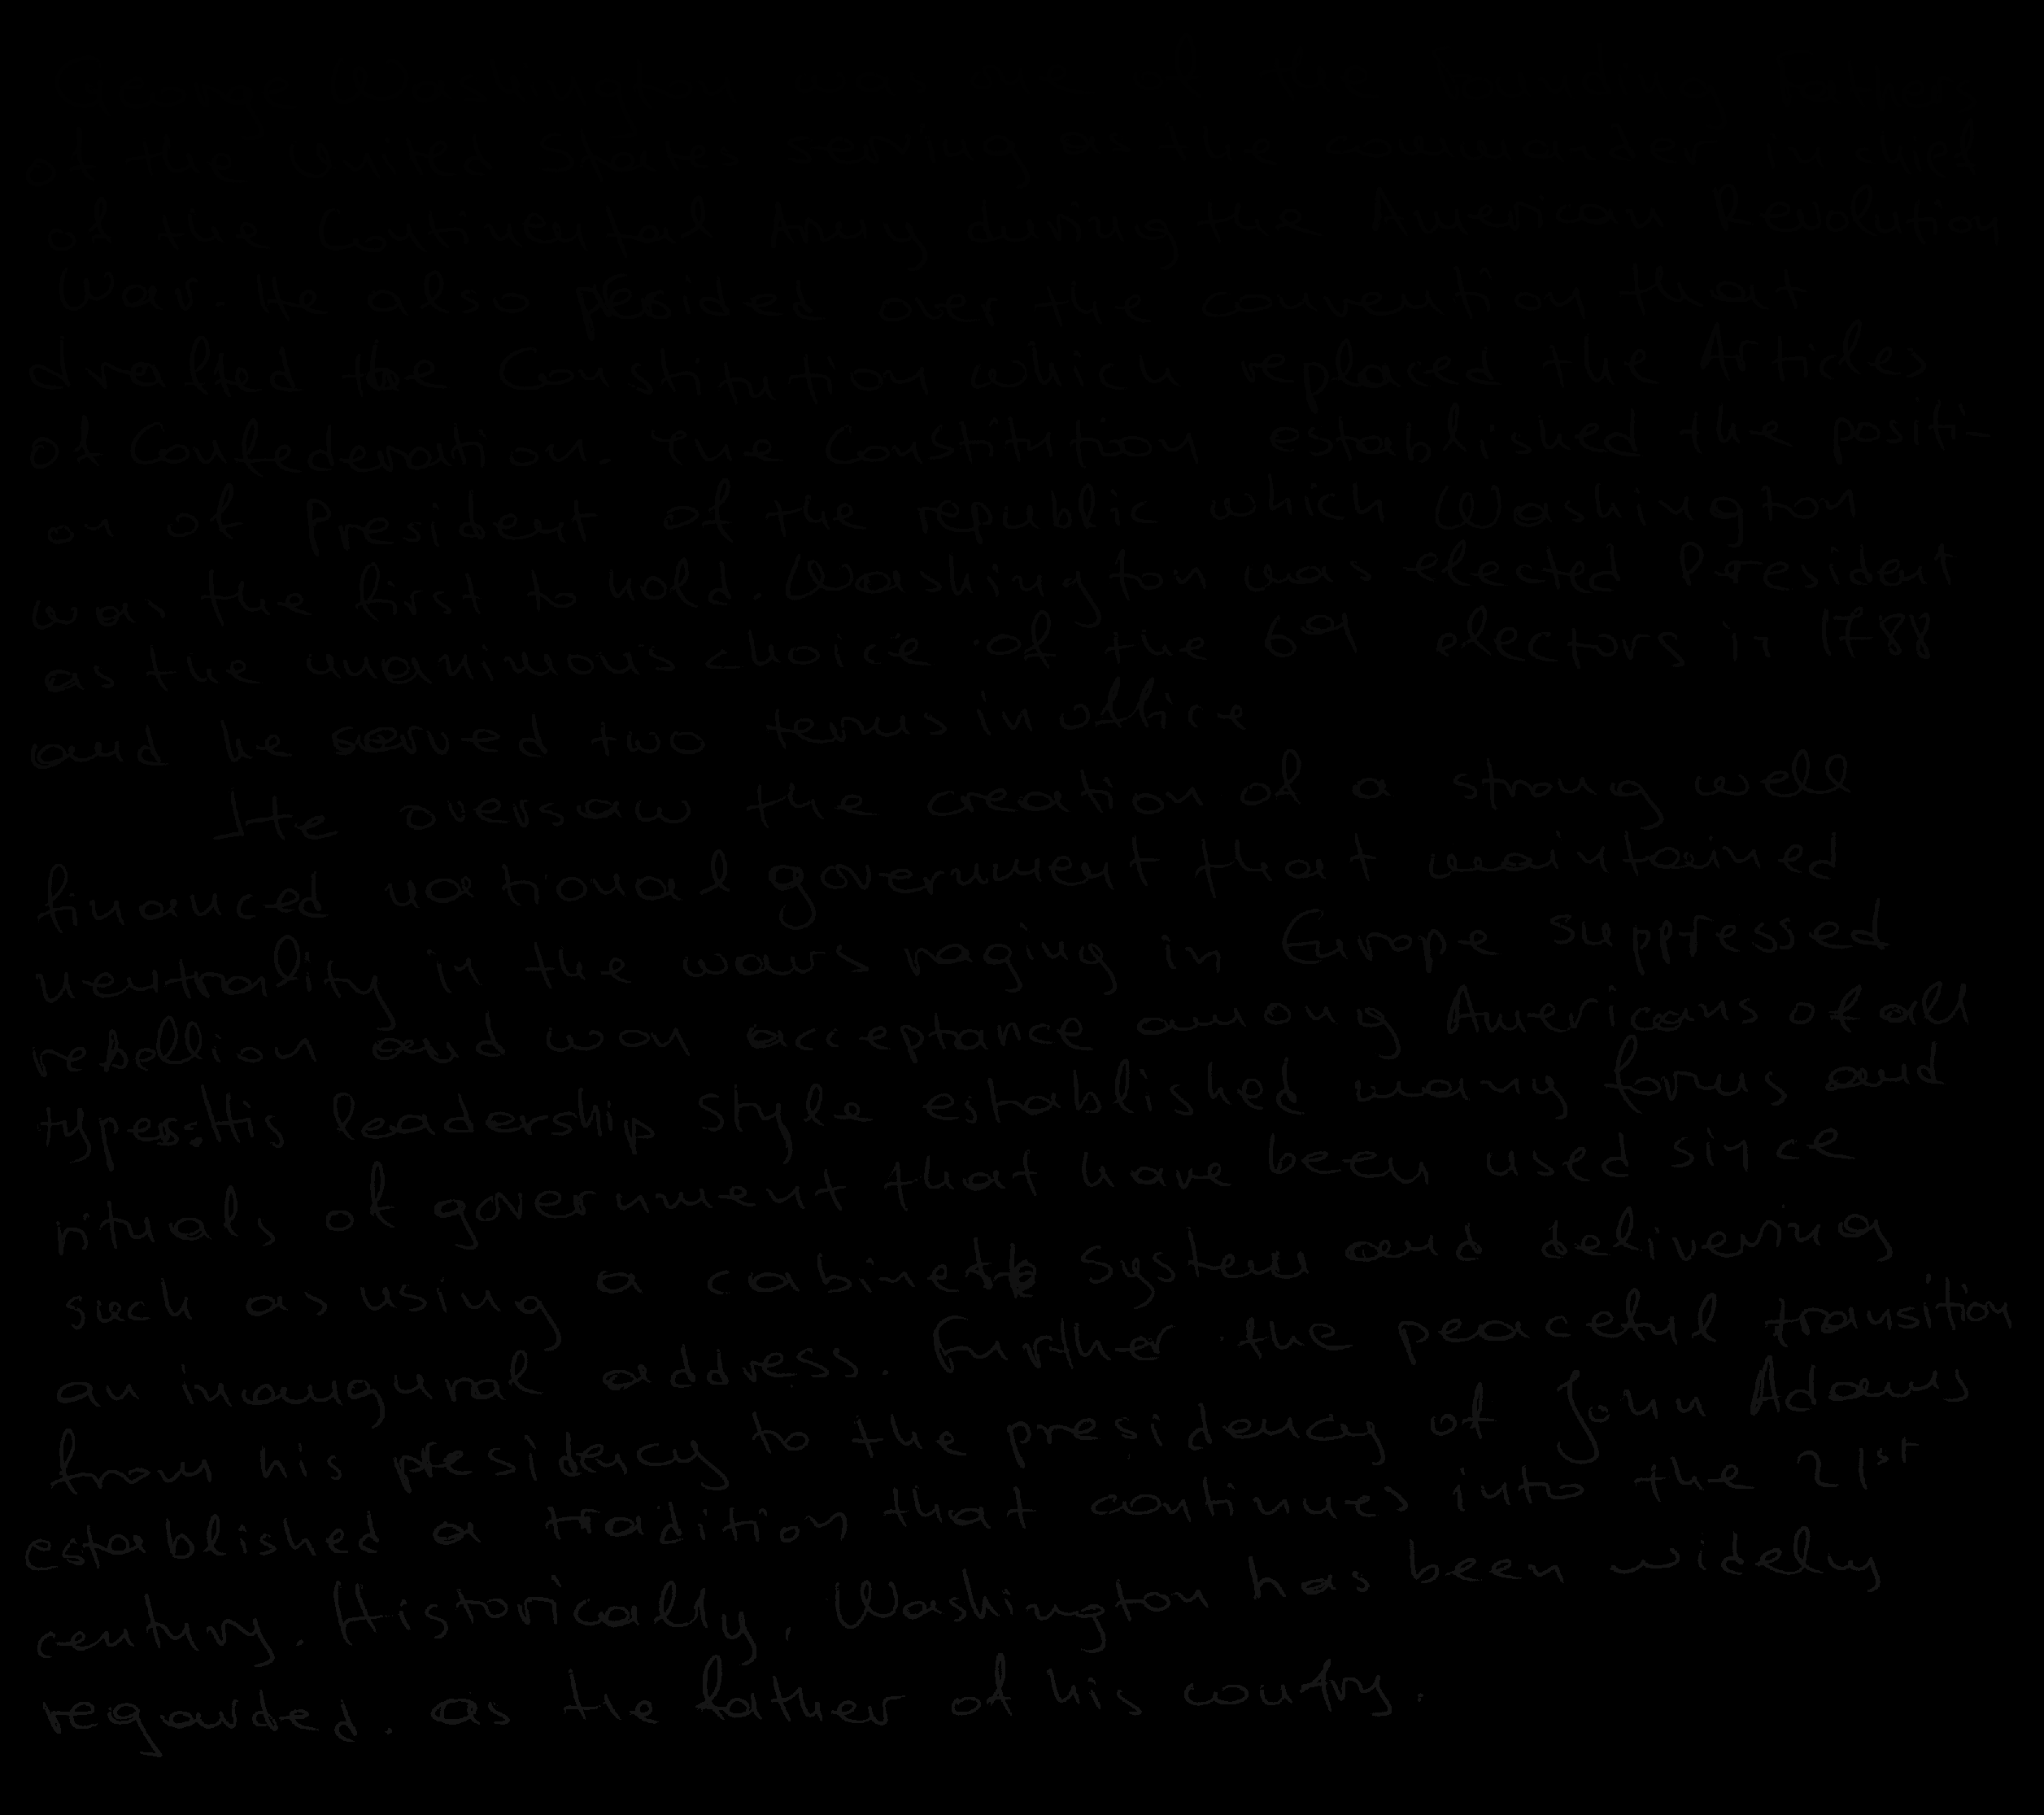 of the United States serving as the commander in chief
of the Continental Army during the American Revolution
War. He also presided over the convention that
drafted the Constitution which replaced the Articles
of Confederation. The Constitution established the positi-
on of President of the republic which Washington
was the first to hold. Washington was elected President
as the unanimous choice of the 69 electors in 1788
and he served two terms in office
He oversaw the creation of a strong well
financed national government that maintained
neutrality in the wars raging in Europe suppressed
rebellion and won acceptance among Americans of all
types. His leadership style established many forms and
rituals of government that have been used since
such as using a cabinet system and delivering
an inaugural address. Further the peaceful transition
from his presidency to the presidency of John Adams
established a tradition that continues into the 21st
century. Historically, Washington has been widely
regarded. as the father of his country.